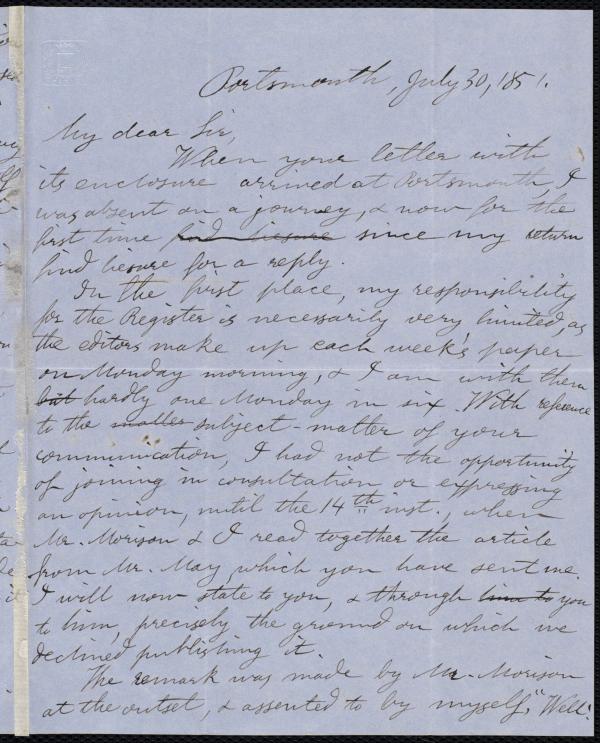 Portsmouth, July 30, 1851.
My dear Sir,
When your letter with
its enclosure arrived at Portsmouth, I
was absent on a journey, & now for the
first time find liesure since my return
find liesure for a reply.
In the first place, my responsibility
for the Register is necessarily very limited, as
the editors make up each week's paper
on Monday morning, & I am with them
but hardly one Monday in six. With reference
to the matter subject-matter of your
communication, I had not the opportunity
of joining in consultation or expressing
an opinion, until the 14th inst., when
Mr. Morison & I read together the article
from Mr. May, which you have sent me.
I will now state to you, & through you
to him, precisely the ground on which we
declined publishing it.
The remark was made by Mr. Morison
at the outset, & assented to by myself, "Well: